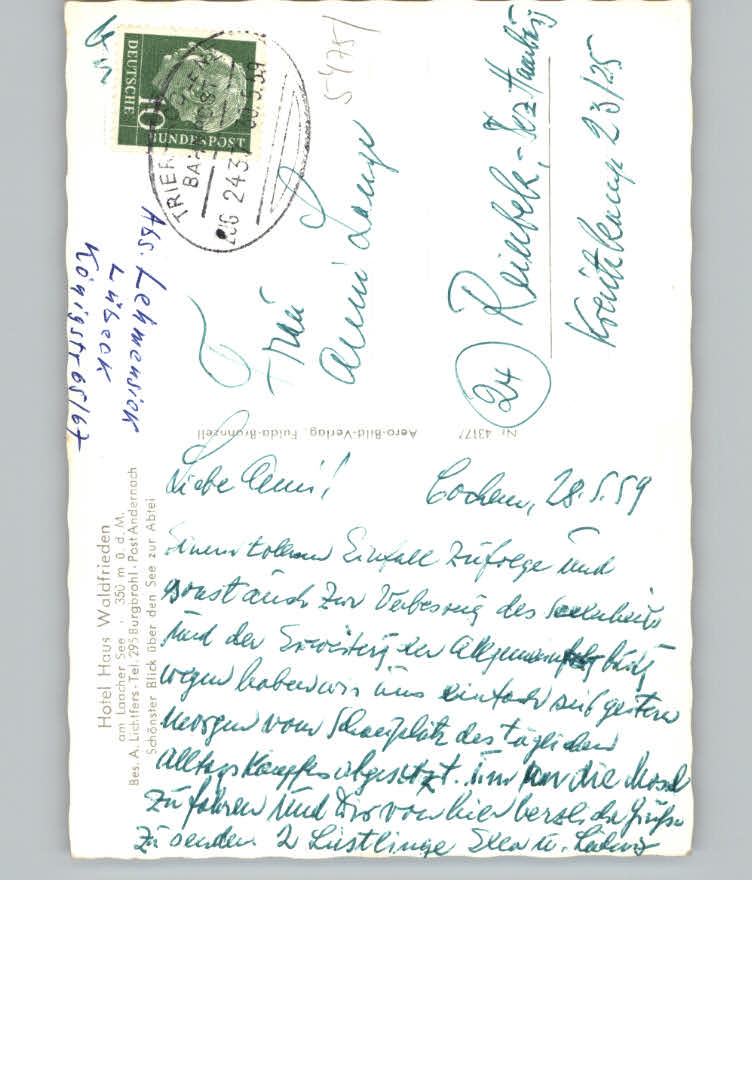 Hotel Haus Waldfrieden
am Laacher See · 350 m ü. d. M.
Bes. A. Lichtfers · Tel. 295 Burgbrohl · Post Andernach
Schönster Blick über den See zur Abtei
Liebe Anni!
Cochem, 28.5.59
Einem tollen Einfall zufolge und
sonst auch zur Verbesserung des Seelenheils
und der Erweiterg der Allgemeinbildg
wegen haben wir uns einfach seit gestern
Morgen vom Schauplatz des täglichen
Alltagskampfes abgesetzt. Um an die Mosel
zu fahren und Dir von hier herzliche Grüße
zu senden. 2 Lüstlinge Ella u. Ludwig
Abs. Lehmensiek
Lübeck
Königstr 65/67
Nr. 43177
Aero-Bild-Verlag, Fulda-Bronnzell
DEUTSCHE
BUNDESPOST
10
TRIER
BAHNPOST
ZUG 243
5.59
5475/
Frau
Anni Lange
24 Reinbek, Bez. Hamburg
Kreutzkamp 23/25